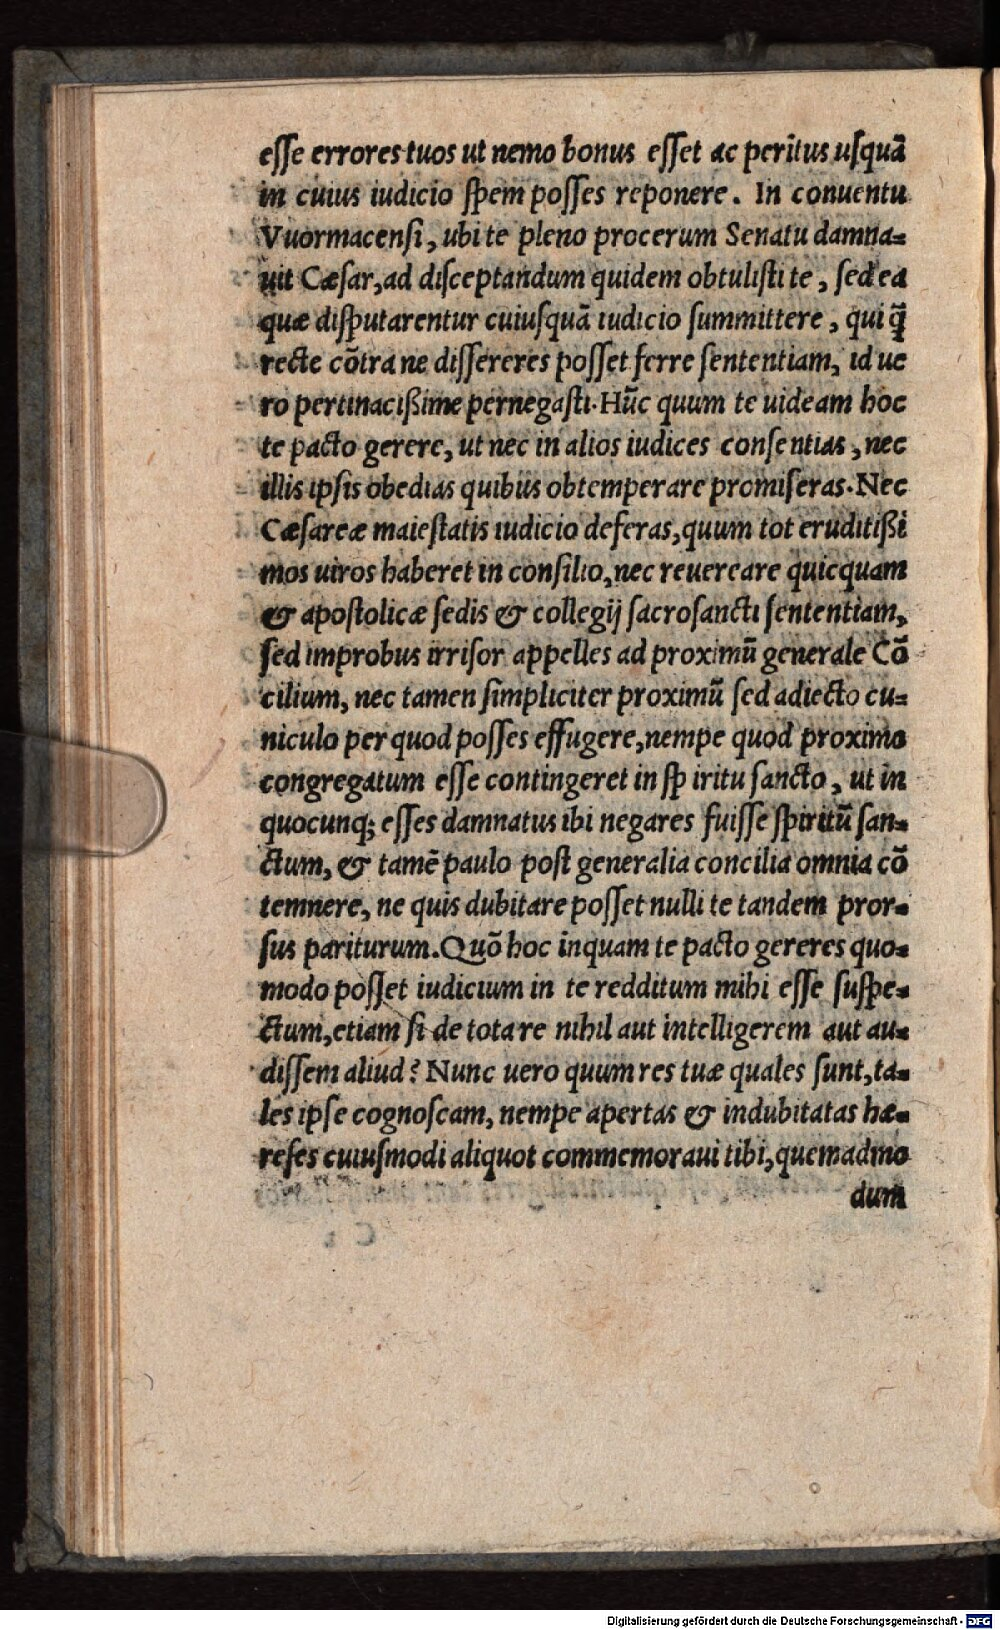 esse errores tuos ut nemo bonus esset ac perĩtus usquā
in cuius iudicio spem posses reponere. In conuentu
Vuormacensi, ubi te pleno procerum Senatu damna=
uit Cæsar, ad disceptandum quidem obtulisti te, sed ea
quæ disputarentur cuiusquā iudicio summittere, qui q̃
recte cōtra ne dissereres posset ferre sententiam, id ue
ro pertinacißime pernegasti. Hūc quum te uideam hoc
te pacto gerere, ut nec in alios iudices consentias, nec
illis ipsis obedias quibus obtemperare promiseras. Nec
Cæsareæ maiestatis iudicio deferas, quum tot eruditißi
mos uiros haberet in consilio, nec reuereare quicquam
& apostolicæ sedis & collegij sacrosancti sententiam,
sed improbus irrisor appelles ad proximū generale Cō
cilium, nec tamen simpliciter proximū sed adiecto cu=
niculo per quod posses effugere, nempe quod proximo
congregatum esse contingeret in sp iritu sancto, ut in
quocunq; esses damnatus ibi negares fuisse spiritū san=
ctum, & tamē paulo post generalia concilia omnia cō
temnere, ne quis dubitare posset nulli te tandem pror=
sus pariturum. Quō hoc inquam te pacto gereres quo=
modo posset iudicium in te redditum mihi esse suspe=
ctum, etiam si de tota re nihil aut intelligerem aut au=
dissem aliud? Nunc uero quum res tuæ quales sunt, ta=
les ipse cognoscam, nempe apertas & indubitatas hæ=
reses cuiusmodi aliquot commemoraui tibi, quemadmo
dum
Digitalisierung gefördert durch die Deutsche Forschungsgemeinschaft - DFG